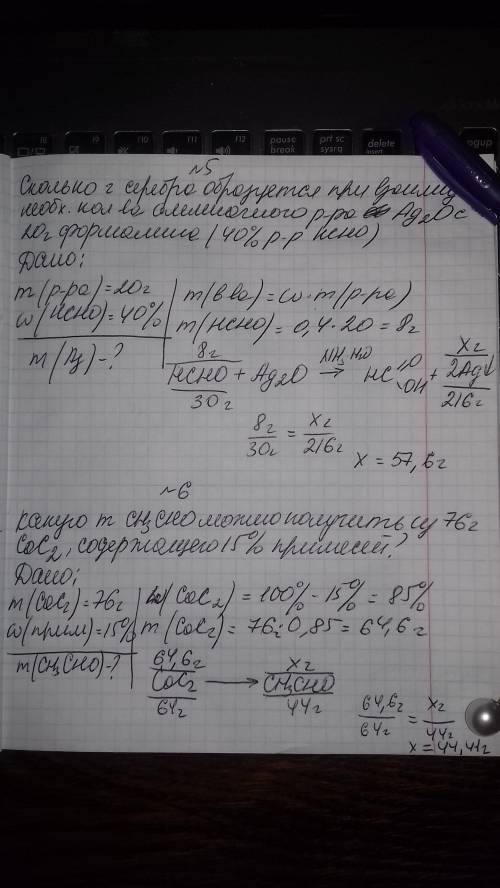 F8 F9 F10 F11 F12 pause break prt sc sysrq delete insert pgup
№5
Сколько г серебра образуется при взаимод
необх. кол-ва аммиачного р-ра Ag2O с
20г формалина (40% р-р HCHO)
Дано:
m(р-ра)=20г
ω(HCHO)=40%
m(Ag)-?
m(в-ва)=ω·m(р-ра)
m(HCHO)=0,4·20=8г
8г xг
HCHO + Ag2O →NH3, H2O HC=O OH + 2Ag↓
30г 216г
8г/30г = xг/216г
x = 57,6г
№6
Какую m CH3CHO можно получить из 76г
CaC2, содержащего 15% примесей?
Дано:
m(CaC2)=76г
ω(прим)=15%
m(CH3CHO)-?
ω(CaC2)=100%-15%=85%
m(CaC2)=76·0,85=64,6г
64,6г xг
CaC2 → CH3CHO
64г 44г
64,6г/64г = xг/44г
x=44,41г